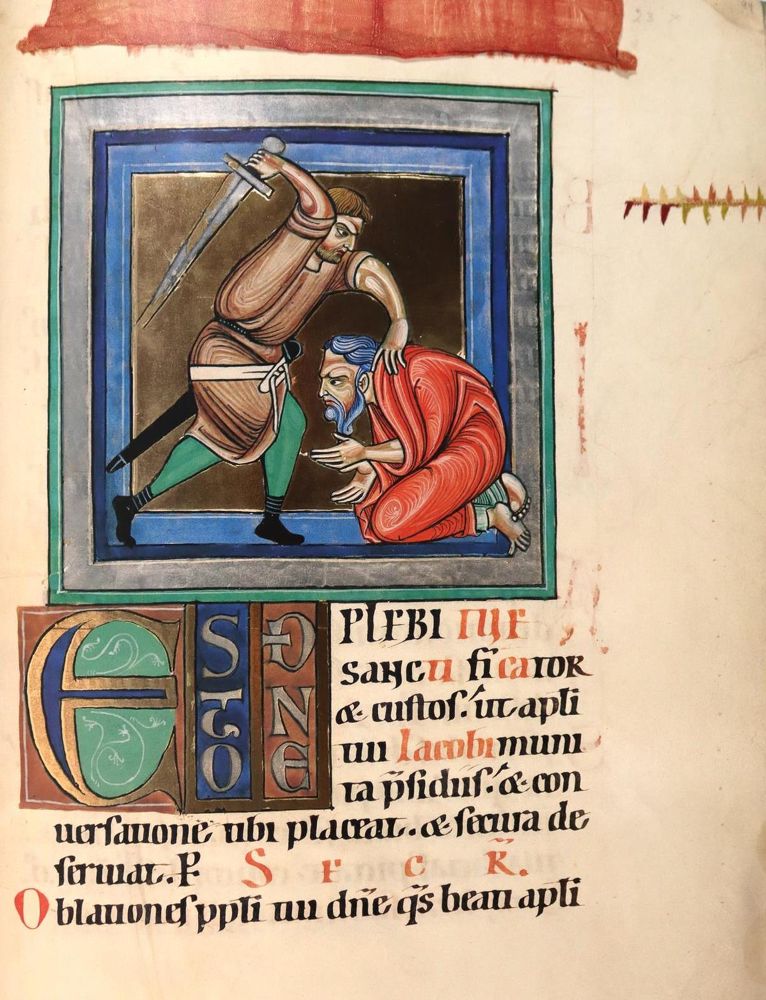 23
ESTO DNE PLEBI TUE
sancti ficator
& cuſtoſ. ut apłi
tui Iacobi muni
ta p̄ſidiiſ. & con
uerſatione tibi placeat. & ſecura de
ſeruiat. P S E C R̄.
Oblationeſ ppłi tui dn̄e q̄s beati apłi